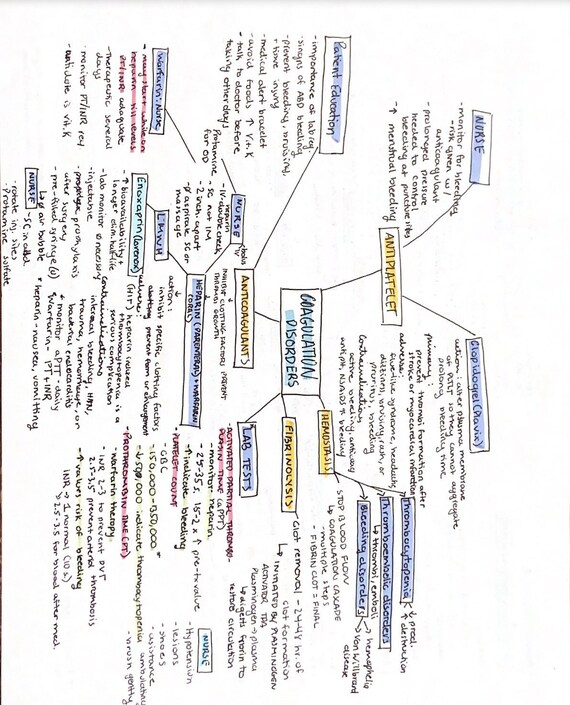 COAGULATION
DISORDERS
ANTIPLATELET
NURSE
- monitor for bleeding
- risk given w/
anticoagulant
- prolonged pressure
needed to control
bleeding at puncture sites
- ↑ menstrual bleeding
Clopidogrel (Plavix)
action: alter plasma membrane
of PLT so they cannot aggregate
prolong bleeding time
primary:
prevent thrombi formation after
stroke or myocardial infarction
adverse:
flu-like syndrome, headache,
dizziness, bruising, rash, or
pruritus, bleeding
contraindications:
active bleeding, anticoag
antiplt, NSAIDs ↑ bleeding
HEMOSTASIS
STOP BLOOD FLOW
↳ COAGULATION CASCADE
- multiple steps
- FIBRIN CLOT = FINAL
Thrombocytopenia
↓ prod.
↑ destruction
Thromboembolic disorders
↳ thrombi, emboli
Bleeding disorders
↳ hemophelia
↳ Von Willbrand
disease
FIBRINOLYSIS
clot removal - 24-48 hr. of
clot formation
↳ INITIATED BY PLASMINOGEN
ACTIVATOR TPA
Plasminogen → plasma
↳ digests fibrin to
restore circulation
LAB TESTS
ACTIVATED PARTIAL THROMBO-
PLASTIN TIME (aPTT)
- monitor heparin
- 25-35s, 1.5-2x ↑ pre-tx value
- ↑ indicate bleeding
PLATELET COUNT
- CBC
- 150,000 - 350,000
- ↓ 500,000 indicate thrombocytopenia
PROTHROMBIN TIME (PT)
- warfarin therapy
- INR 2-3 to prevent DVT
2.5-3.5 prevent arterial thrombosis
- ↑ values risk of bleeding
INR → 1 normal (10 s)
↳ 2.5-3.5 for blood after med.
NURSE
- Hypotension
- lesions
- shoes
- assistance
ambulating
- brush gently
ANTICOAGULANTS
INHIBIT CLOTTING FACTORS PREVENT
THROMBUS GROWTH
Patient Education
- importance of lab req.
- signs of ABD bleeding
- prevent bleeding, bruising,
+ tissue injury
- medical alert bracelet
- avoid foods ↑ vit. K
- talk to doctor before
taking other days
NURSE
- IV double check
heparin
bolus
IV
- SC not IM
2 inches apart
- ∅ aspirate SC or
massage
Protamine
for OD
Warfarin: Nurse
- may start while on
heparin till levels
PT/INR: adequate
- therapeutic several
days
- monitor PT/INR req
- antidote is vit. K
HEPARIN (PARENTERAL) + WARFARIN
(ORAL)
action:
inhibit specific clotting factors
clotting prevent form or enlargement
(HIT) heparin induced
thrombocytopenia is a
serious complication
contraindications
internal bleeding, HTN,
trauma, hemorrhage, or
bacterial endocarditis
↓ monitor aPTT daily
warfarin - PT + INR
heparin - nausea, vomitting
LMWH
Enoxaprin (lovenox)
- ↑ bioavailability +
longer ½ life
- lab monitor ∅ necessary
- injectable
- prophylaxis
after surgery
- pre-filled syringe
↳ ∅ air bubble
NURSE
- SC in abd
- rotate inj. sites
- Protamine sulfate